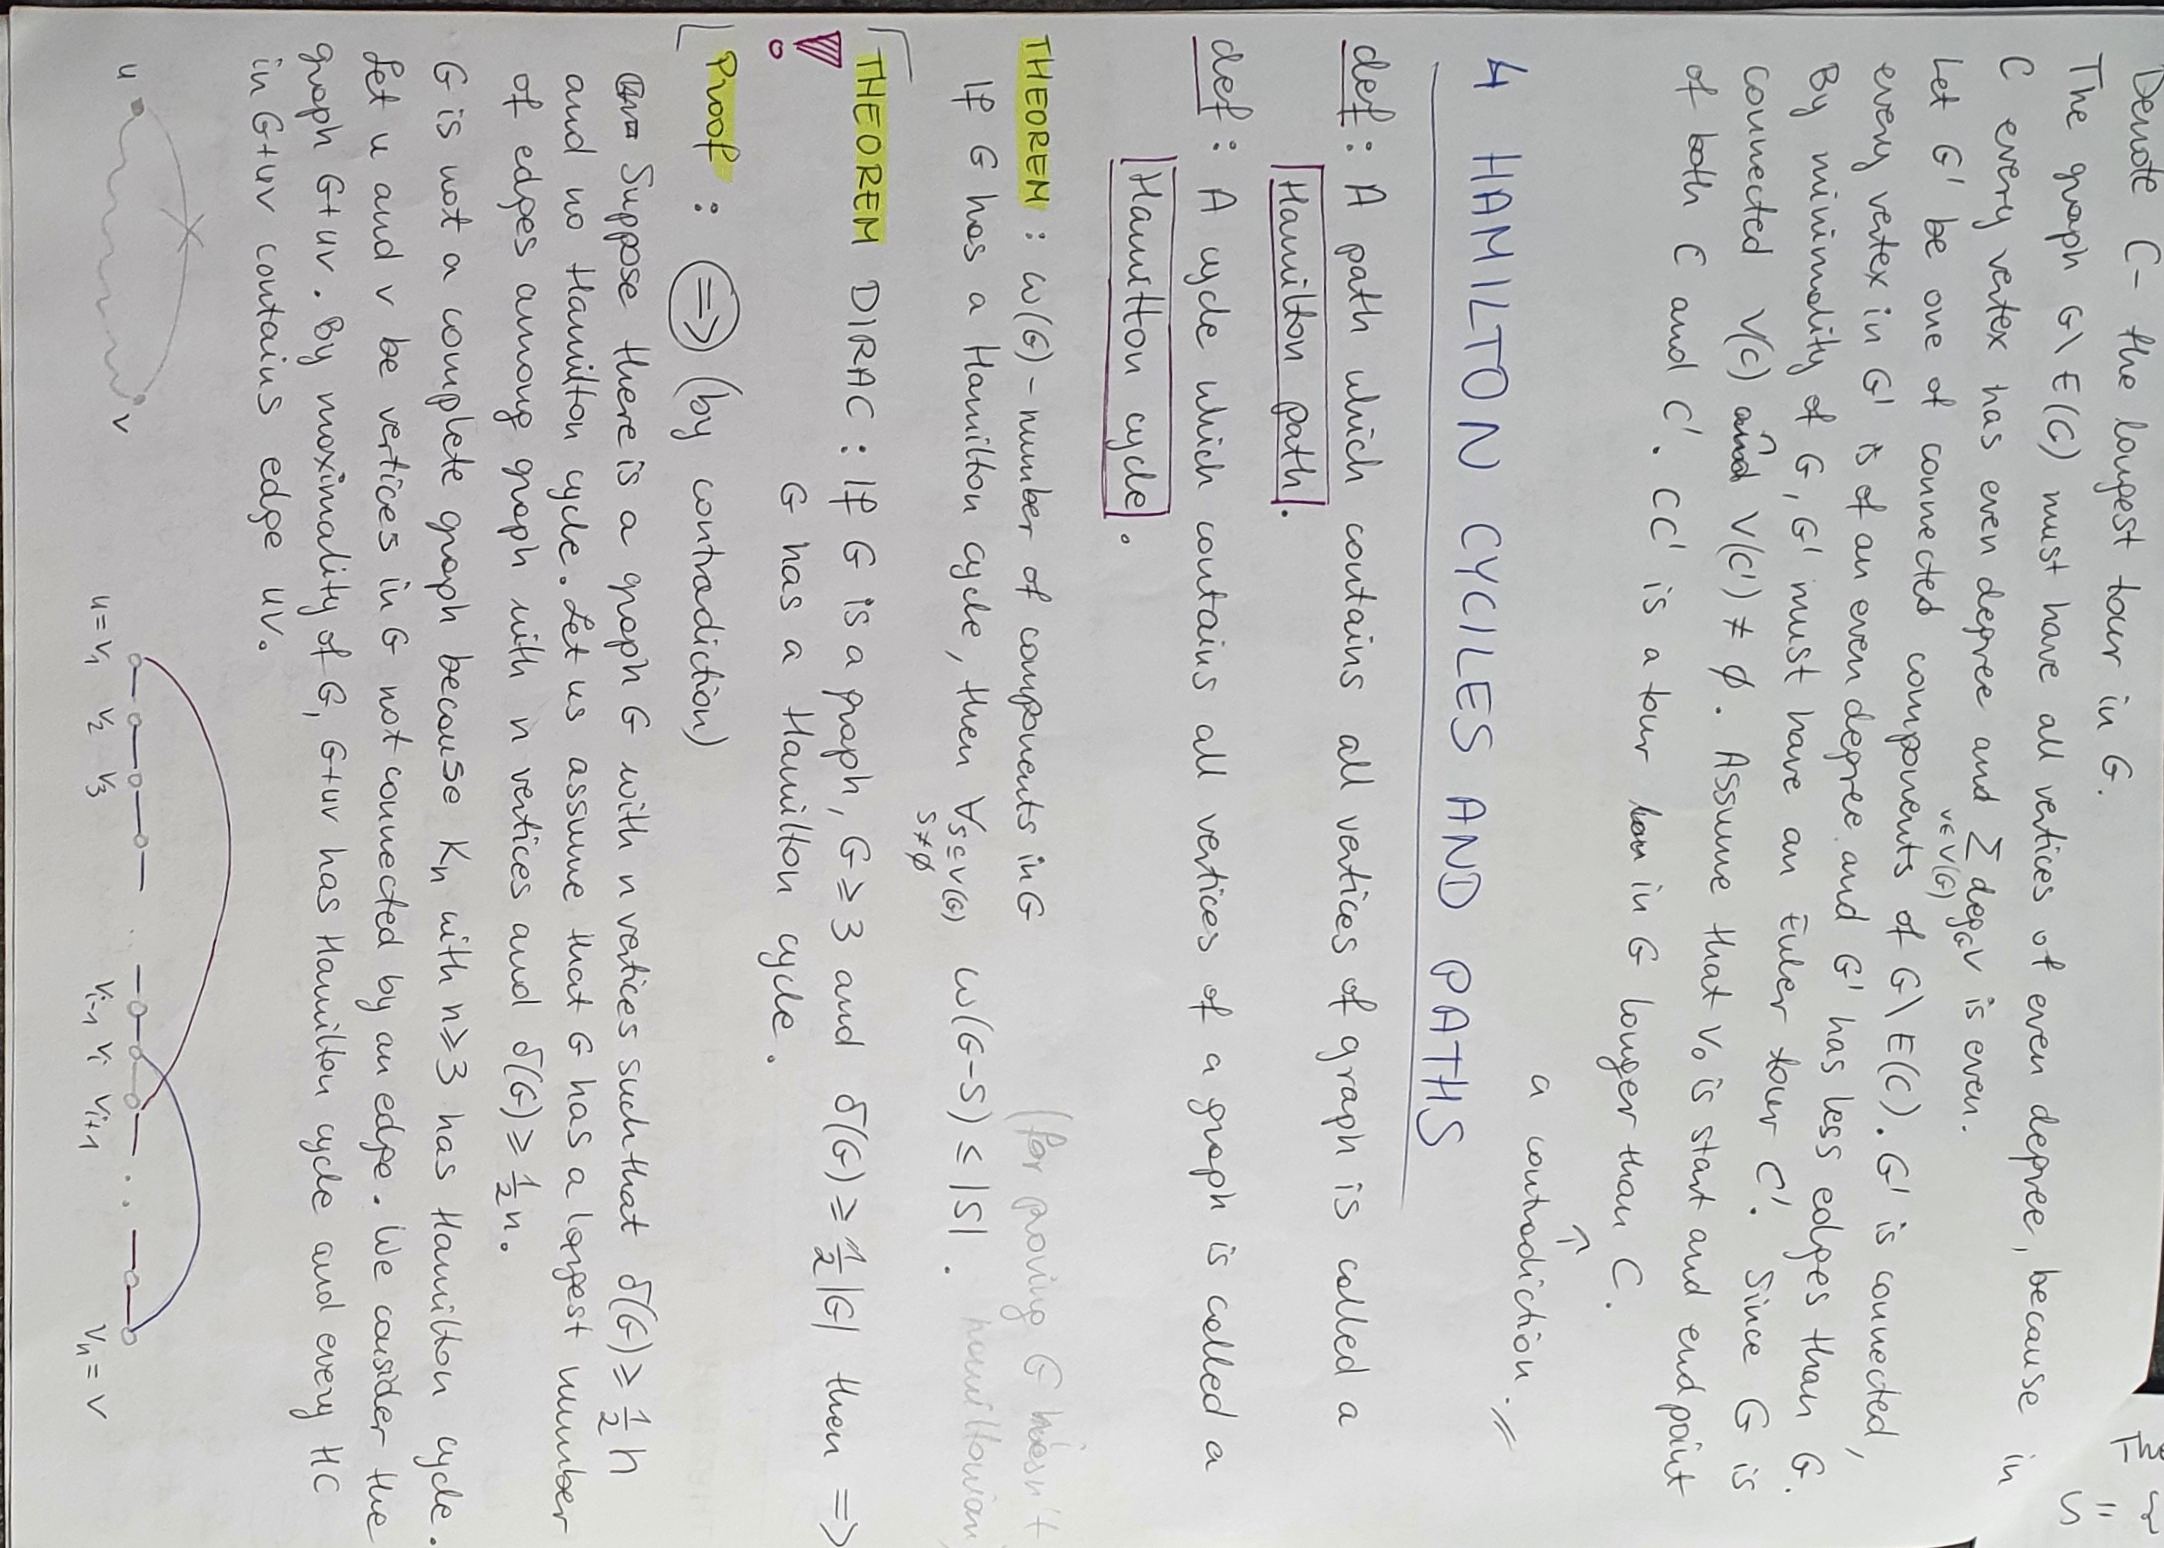 Denote C - the longest tour in G.
The graph G\E(C) must have all vertices of even degree, because in
C every vertex has even degree and ∑ deg_G v is even.
v∈V(G)
Let G' be one of connected components of G\E(C). G' is connected,
every vertex in G' is of an even degree and G' has less edges than G.
By minimality of G, G' must have an Euler tour C'. Since G is
connected V(C) ∩ V(C') ≠ ∅. Assume that v₀ is start and endpoint
of both C and C'. CC' is a tour in G longer than C.
↑
a contradiction. //
4 HAMILTON CYCILES AND PATHS
def: A path which contains all vertices of graph is called a
Hamilton path.
def: A cycle which contains all vertices of a graph is called a
Hamilton cycle.
THEOREM: ω(G) - number of components in G (for proving G
If G has a Hamilton cycle, then ∀ S⊆V(G) ω(G-S) ≤ |S|. hamiltonian
S≠∅
THEOREM DIRAC: If G is a graph, G ≥ 3 and δ(G) ≥ 1/2 |G| then =>
G has a Hamilton cycle.
Proof: => (by contradiction)
Suppose there is a graph G with n vertices such that δ(G) ≥ 1/2 n
and no Hamilton cycle. Let us assume that G has a largest number
of edges among graph with n vertices and δ(G) ≥ 1/2 n.
G is not a complete graph because Kₙ with n ≥ 3 has Hamilton cycle.
Let u and v be vertices in G not connected by an edge. We consider the
graph G+uv. By maximality of G, G+uv has Hamilton cycle and every HC
in G+uv contains edge uv.
u v u = v₁ v₂ v₃ vᵢ₋₁ vᵢ vᵢ₊₁ vₙ = v
The
S = {